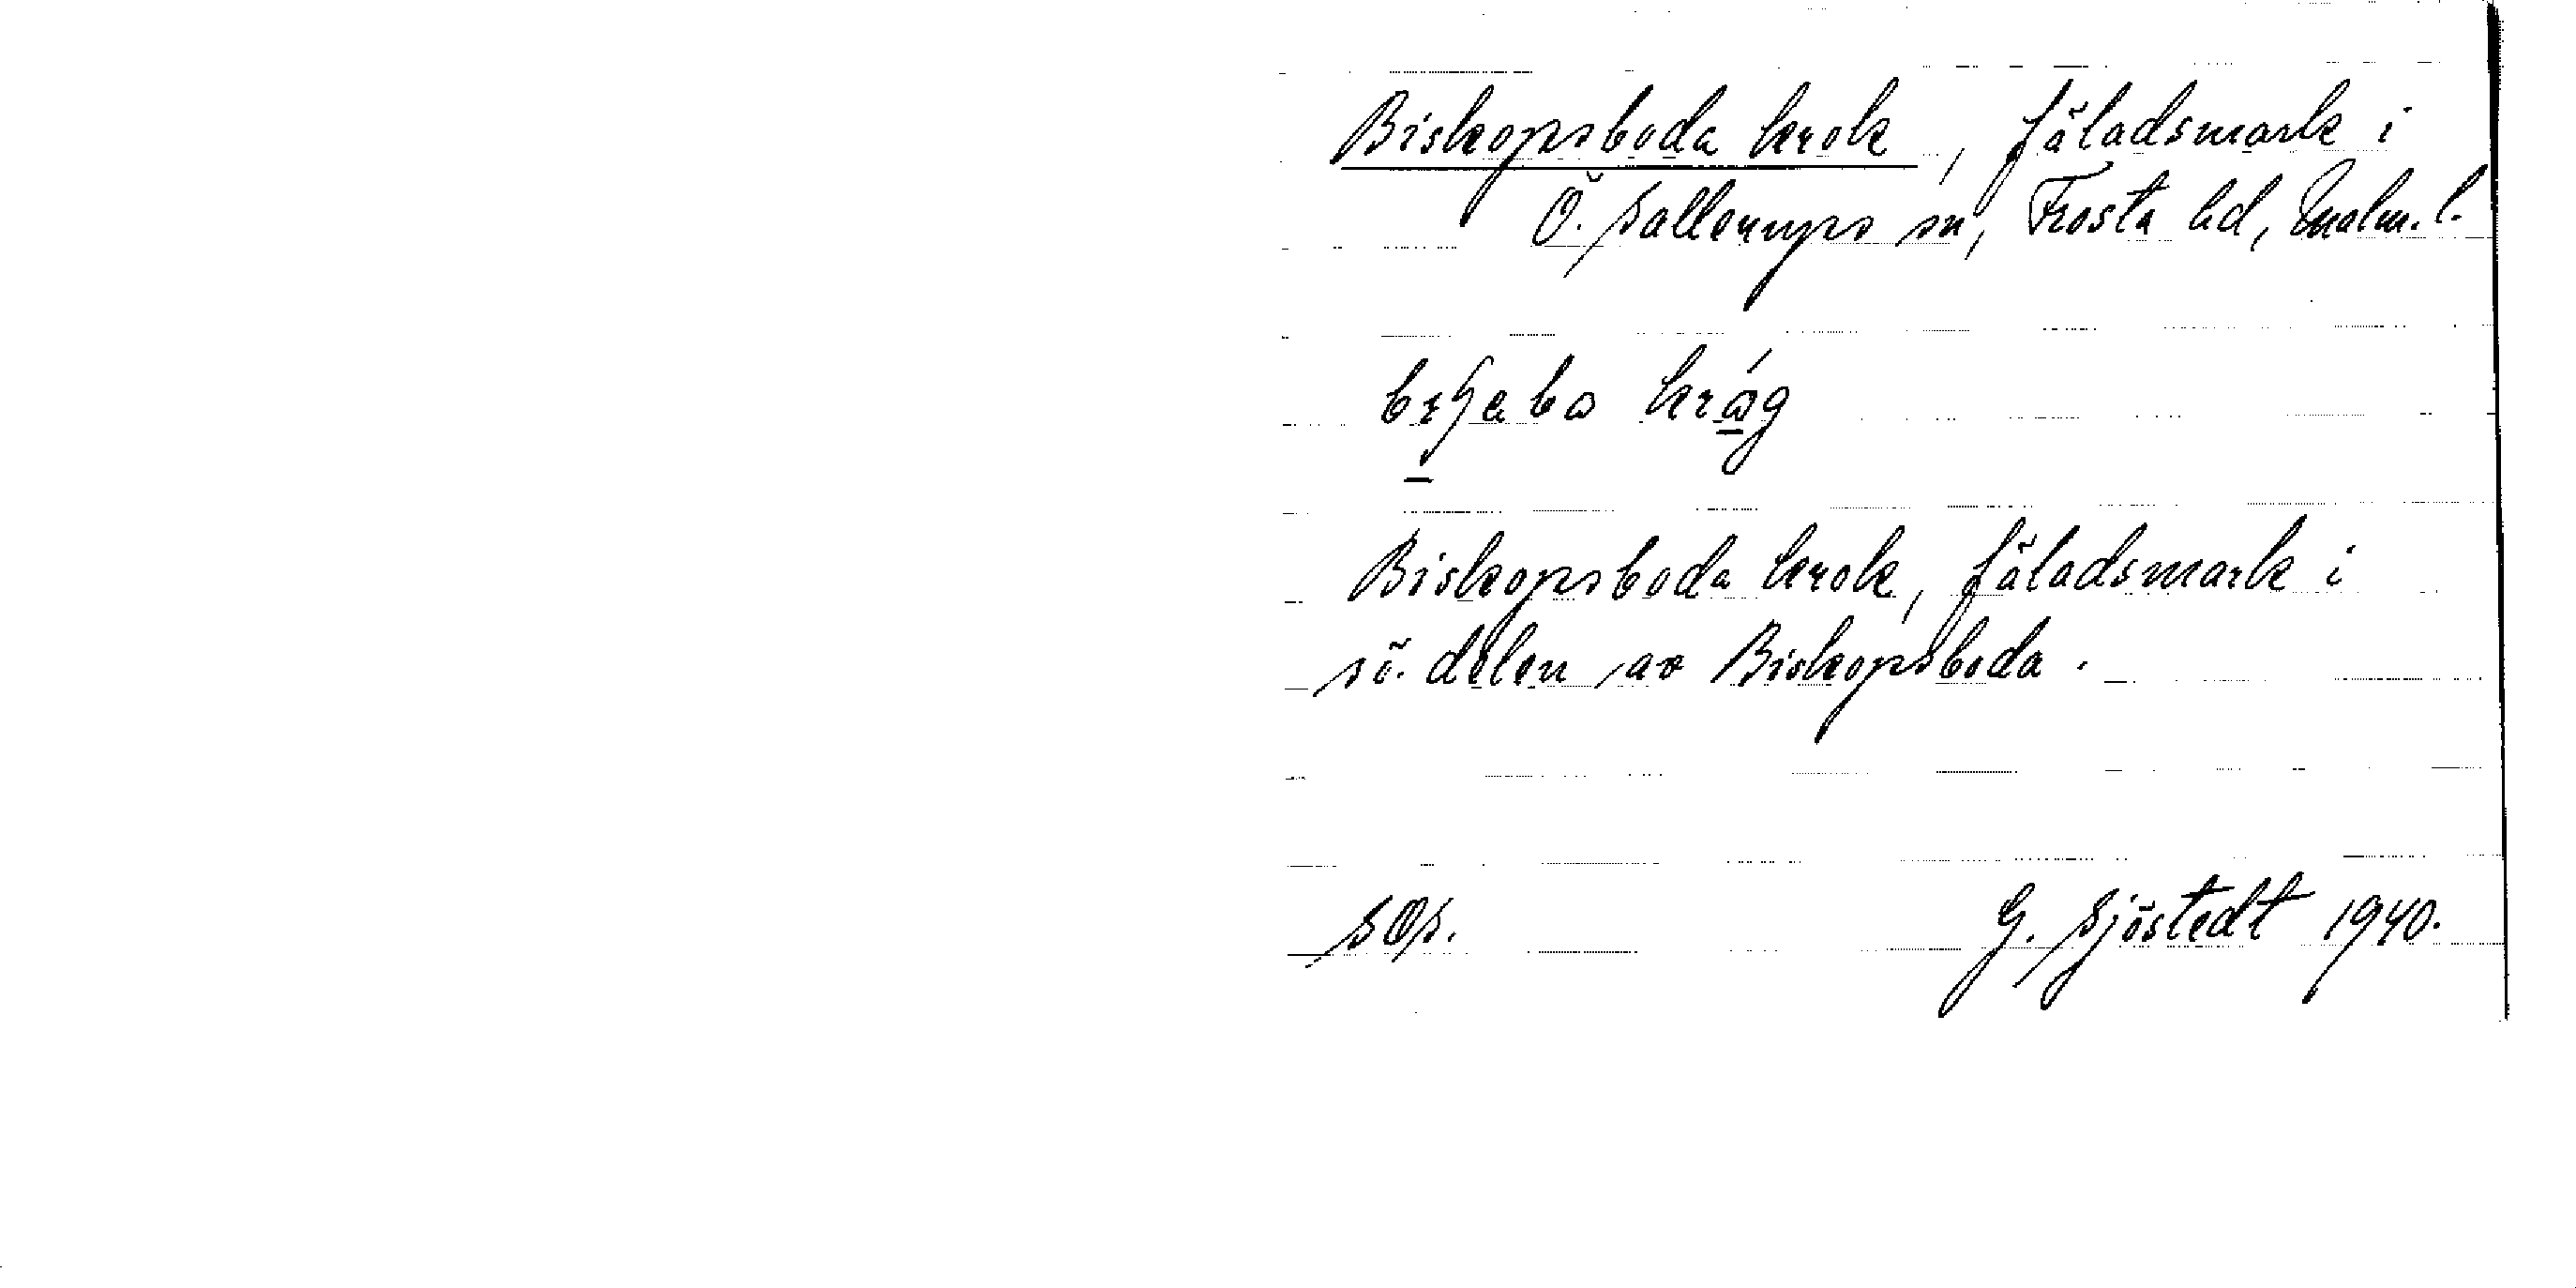 Biskopsboda krok, fäladsmark i
Ö. Sallerups sn, Frosta hd, Malm. l.
kråg
Biskopsboda krok, fäladsmark i
sö. delen av Biskopsboda.
SOS.
G. Sjöstedt 1940.